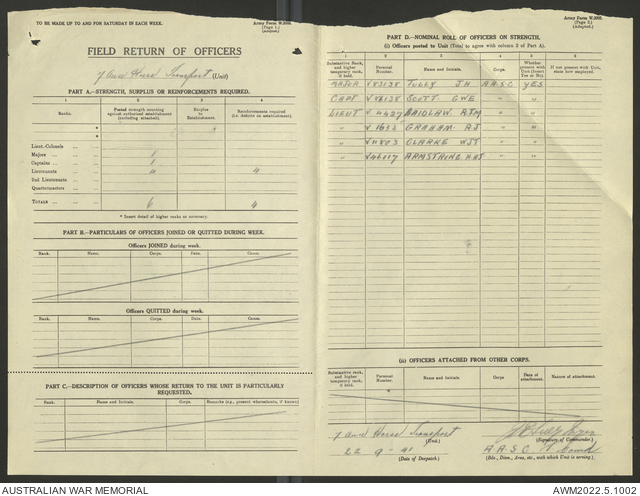 TO BE MADE UP TO AND FOR SATURDAY IN EACH WEEK.
Army Form W.3008.
(Page 1.)
(Adapted.)
FIELD RETURN OF OFFICERS
Transport (Unit)
PART A.—STRENGTH, SURPLUS OR REINFORCEMENTS REQUIRED.
1 2 3 4
Ranks. Posted strength counting against authorized establishment (excluding attached). Surplus to Establishment. Reinforcements required (i.e. deficits on establishment).
*
*
Lieut.-Colonels ... ...
Majors ... ... 1
Captains ... ... 1
Lieutenants ... ... 4 4
2nd Lieutenants ... ...
Quartermasters ... ...
TOTALS ... ... 6 4
* Insert detail of higher ranks as necessary.
PART B.—PARTICULARS OF OFFICERS JOINED OR QUITTED DURING WEEK.
Officers JOINED during week.
Rank. Name. Corps. Date. Cause.
Officers QUITTED during week.
Rank. Name. Corps. Date. Cause.
PART C.—DESCRIPTION OF OFFICERS WHOSE RETURN TO THE UNIT IS PARTICULARLY REQUESTED.
Rank. Name and Initials. Corps. Remarks (e.g., present whereabouts, if known)
Army Form W.3008.
(Page 2.)
(Adapted.)
PART D.—NOMINAL ROLL OF OFFICERS ON STRENGTH.
(i) Officers posted to Unit (Total to agree with column 2 of Part A).
1 2 3 4 5 6
Substantive Rank, and higher temporary rank, if held. Personal Number. Name and Initials. Corps. Whether present with Unit (Insert Yes or No). If not present with Unit, state how employed.
MAJOR TULLY JH A.A.S.C YES
CAPT SCOTT GWE " "
LIEUT LAIDLAW " "
" GRAHAM RJ " "
" CLARKE WJT " "
" ARMSTRONG " "
(ii) OFFICERS ATTACHED FROM OTHER CORPS.
Substantive rank, and higher temporary rank, if held. Personal Number. Name and Initials. Corps. Date of attachment. Nature of attachment.
Horse Transport
(Unit.)
(Signature of Commander.)
22 - 9 - 41 A.A.S.C
(Date of Despatch.) (Bde., Divn., Area, etc., with which Unit is serving.)
AUSTRALIAN WAR MEMORIAL
AWM2022.5.1002